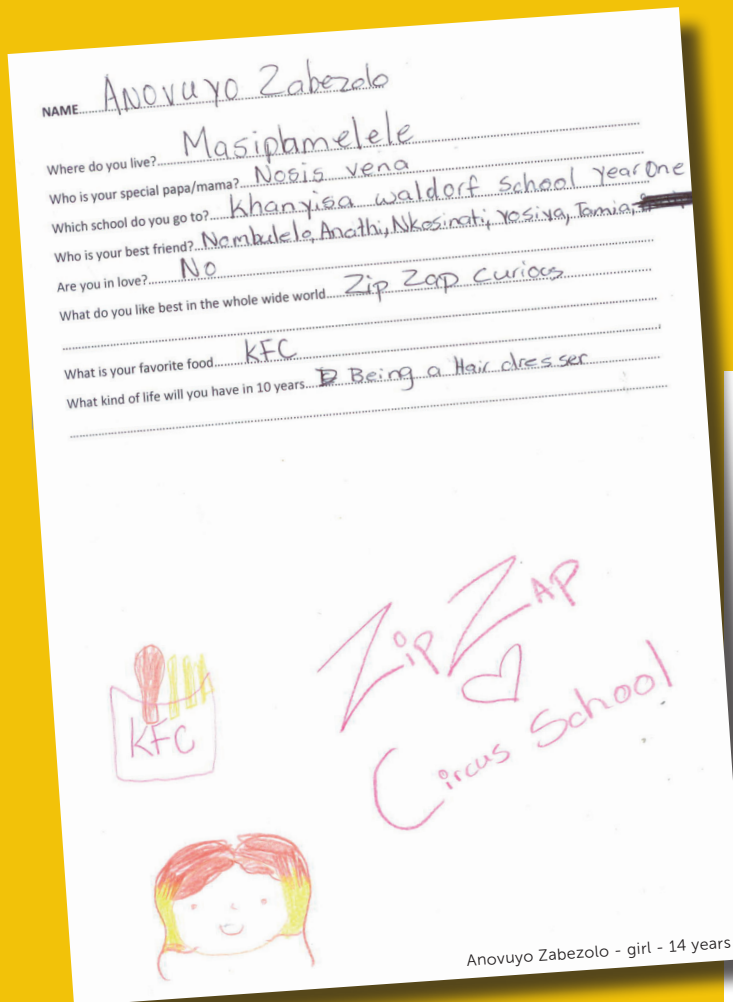 NAME ANOVUYO Zabezolo
Where do you live? Masiphamelele
Who is your special papa/mama? Nosis vena
Which school do you go to? Khanyisa waldorf School Year One
Who is your best friend? Nombulelo, Anathi, Nkosinati, Yosiva, Tamia,
Are you in love? No
What do you like best in the whole wide world Zip Zap Curious
What is your favorite food KFC
What kind of life will you have in 10 years Being a Hair dresser
Zip ZAP
Circus School
KFC
Anovuyo Zabezolo - girl - 14 years